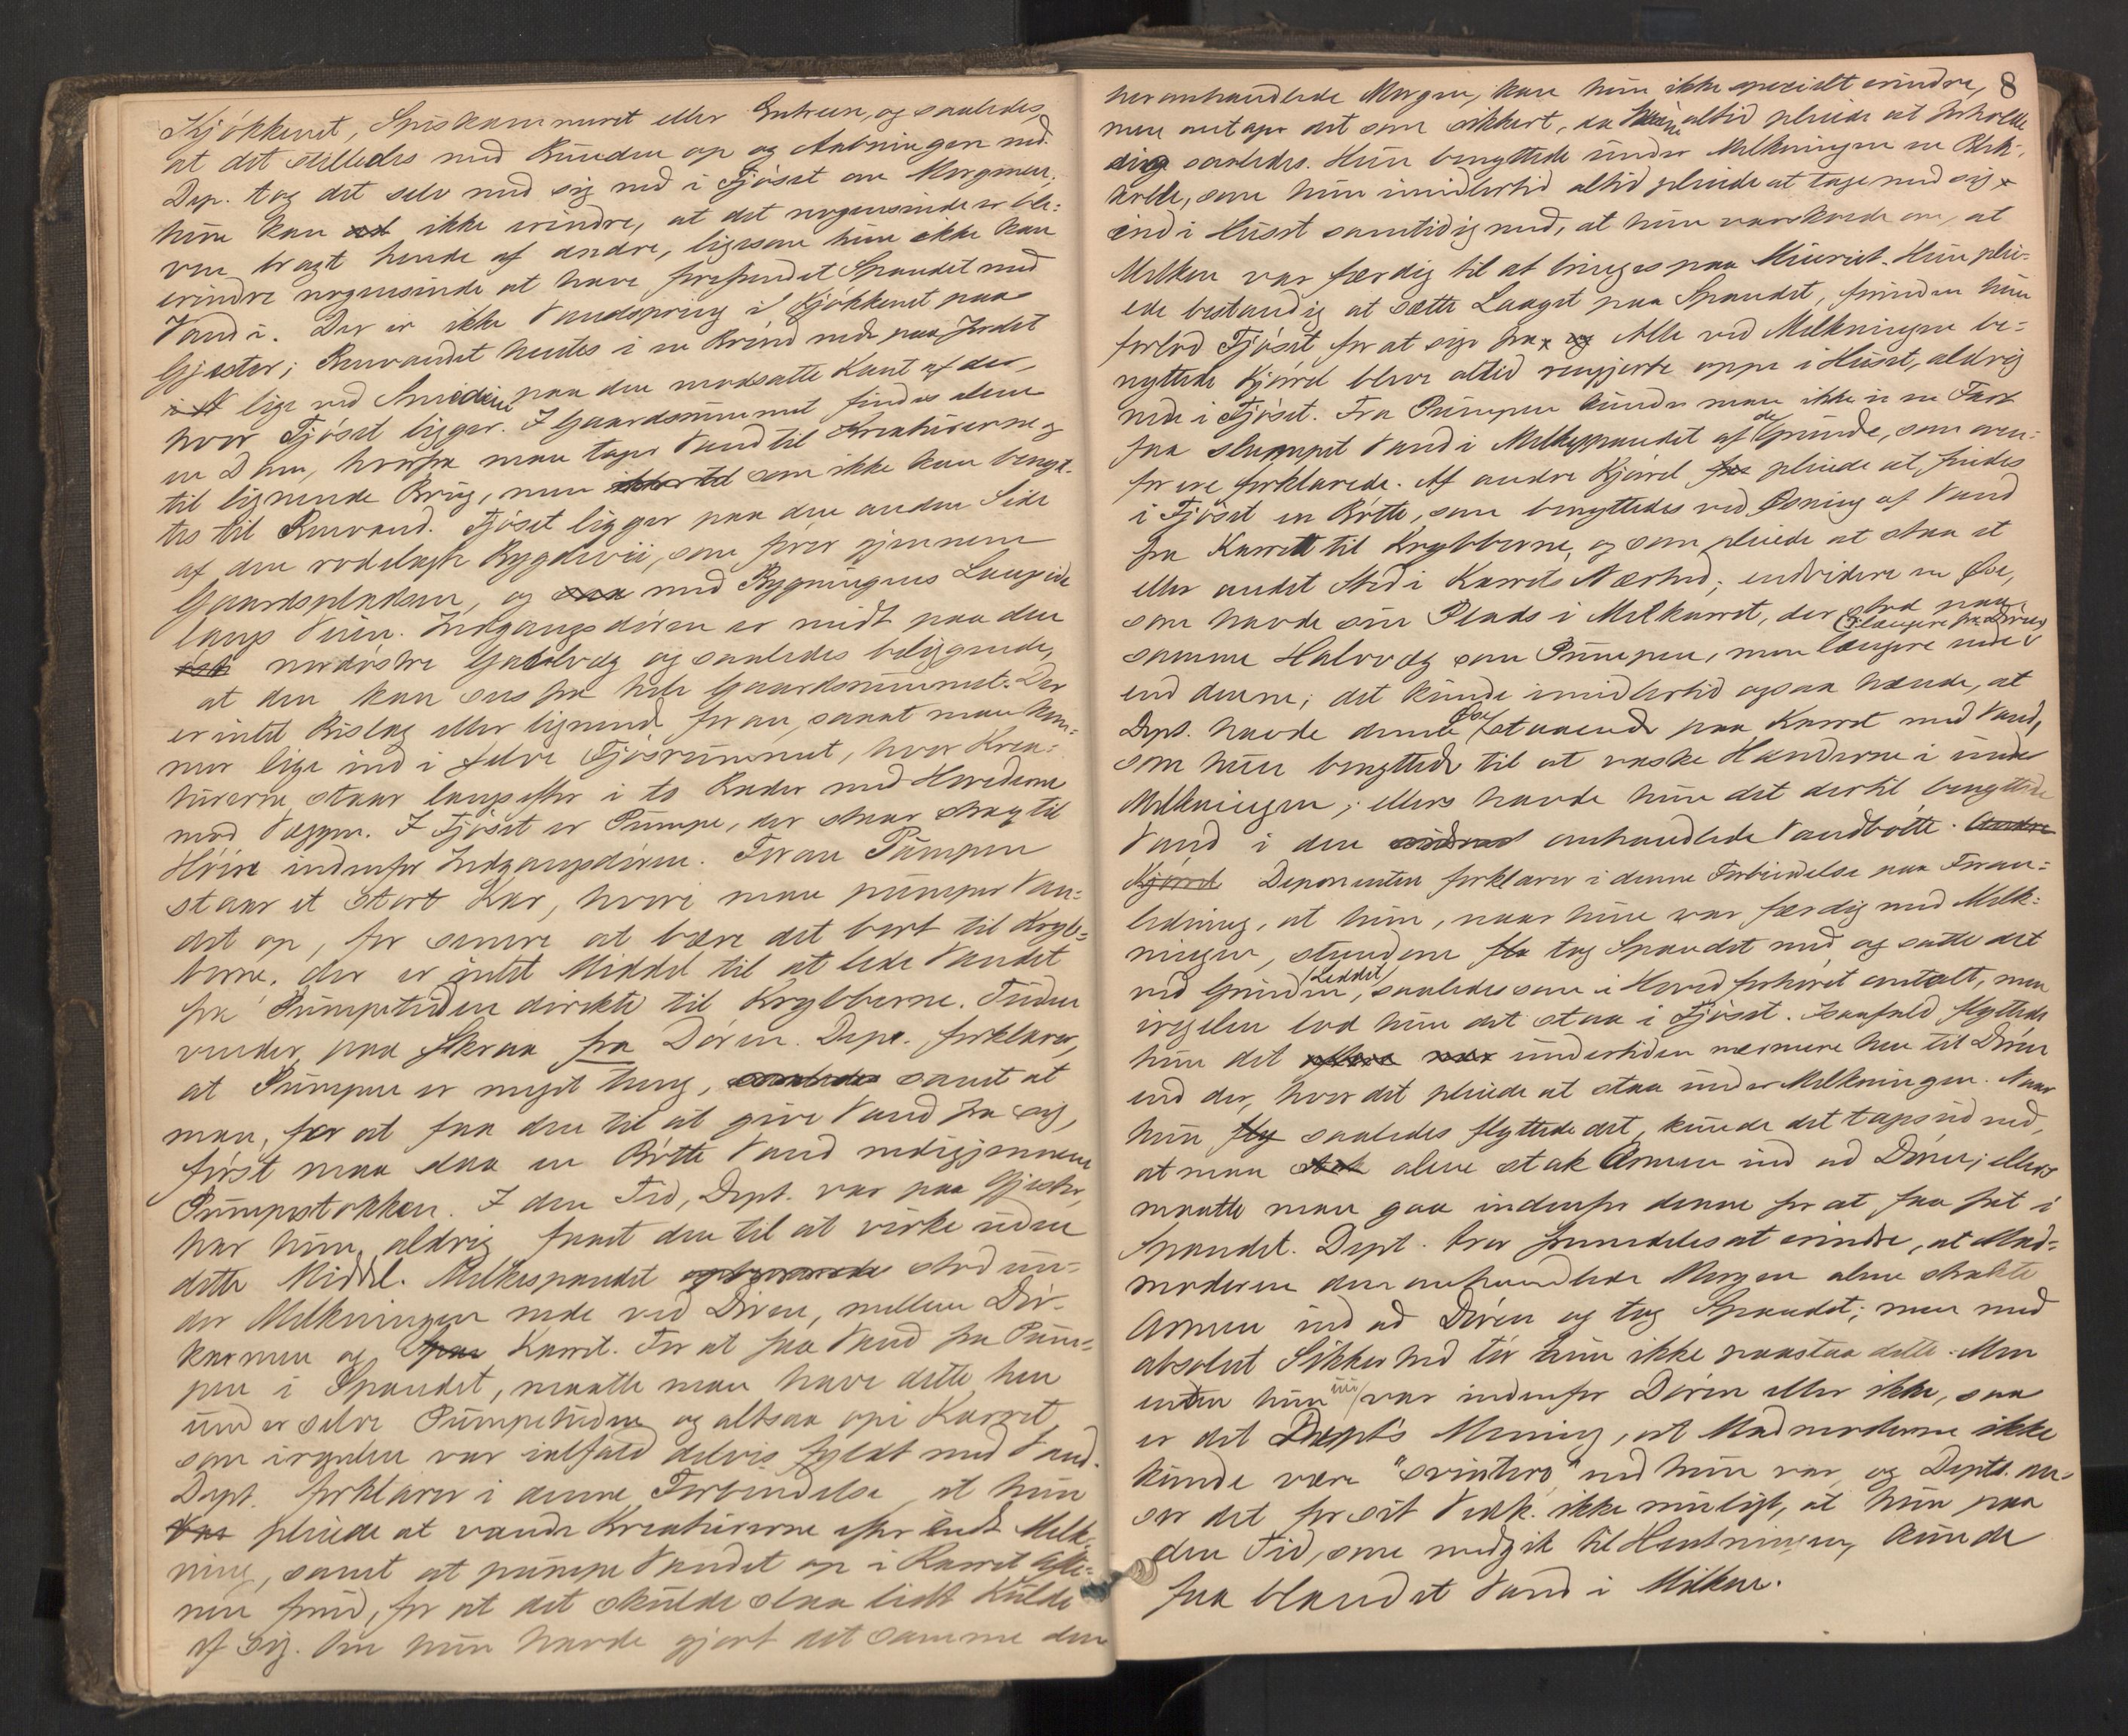 Kjøkkenet, Spiskammeret eller Entreen, og saaledes,
at det stilledes med Bunden op og Aabningen ned.
Dep. tog det selv med sig ned i Fjøset om Morgenen;
hun kan ikke erindre, at det nogensinde er ble-
ven bragt hende af andre, ligesom hun ikke kan
erindre nogensinde at have forefundet Spandet med
Vand i. Der er ikke Vandspring i Kjøkkenet paa
Gjestor; Renvandet hentes i en Brønd nede paa Jordet
lige ved Smedien paa den modsatte Kant af der,
hvor Fjøset ligger. I Gaardsrummet findes alene
en Dam, hvorfra man tager Vand til Kreaturerne og
til lignende Brug, men som ikke kan benyt-
tes til Renvand. Fjøset ligger paa den anden Side
af den rodelagte Bygdevei, som fører gjennem
Gaardspladsen, og med Bygningens Langside
langs Veien. Indgangsdøren er midt paa den
nordøstre Gavlvæg og saaledes beliggende,
at den kan sees fra hele Gaardsrummet. Der
er intet Bislag eller lignende foran, saaat man kom-
mer lige ind i selve Fjøsrummet, hvor Krea-
turerne staar langsefter i to Rader med Hovederne
mod Væggen. I Fjøset er Pumpe, der staar strax til
Høire indenfor Indgangsdøren. Foran Pumpen
staar et stort Kar, hvori man pumper Van-
det op, for senere at bære det bort til Kryb-
berne. der er intet Middel til at lede Vandet
fra Pumpetuden direkte til Krybberne. Tuden
vender paa Skraa fra Døren. Dep. forklarer,
at Pumpen er meget tung, samt at
man, for at faa den til at give Vand fra sig,
først maa slaa en Bøtte Vand nedigjennem
Pumpestokken. I den Tid, Dept. var paa Gjestor,
har hun aldrig faaet den til at virke uden
dette Middel. Melkespandet stod un-
der Melkningen nede ved Døren, mellem Dør-
karmen og Karret. For at faa Vand fra Pum-
pen i Spandet, maatte man have dette hen
under selve Pumpetuden og altsaa opi Karret,
som iregelen var ialfald delvis fyldt med Vand.
Dept. forklarer i denne Forbindelse, at hun
pleiede at vande Kreaturerne efter endt Melk-
ning, samt at pumpe Vandet op i Karret Afte-
nen forud, for at det skulde slaa lidt Kulde
af sig. Om hun havde gjort det samme den
8
heromhandlede Morgen, kan hun ikke specielt erindre,
men antager det som sikkert, da hun altid pleiede at forholde
sig saaledes. Hun benyttede under Melkningen en Blik-
kolle, som hun imidlertid altid pleiede at tage med sig
ind i Huset samtidig med, at hun varskoede om, at
Melken var færdig til at bringes paa Meieriet. Hun plei-
ede bestandig at sætte Laaget paa Spandet, forinden hun
forlod Fjøset for at sige fra. Alle ved Melkningen be-
nyttede Kjørrel bleve altid rengjorte oppe i Huset, aldrig
nede i Fjøset. Fra Pumpen kunde man ikke i en Fart
faa slumpet Vand i Melkespandet af de Grunde, som oven-
for ere forklarede. Af andre Kjørrel pleiede at findes
i Fjøset en Bøtte, som benyttedes ved Øsning af Vand
fra Karret til Krybberne, og som pleiede at staa et
eller andet Sted i Karrets Nærhed; endvidere en Øse,
som havde sin Plads i Melkarret, der stod paa
samme Halvvæg som Pumpen, men længere nede (længere fra Døren)
end denne; det kunde imidlertid ogsaa hænde, at
Dept. havde denne Øse staaende paa Karret med Vand,
som hun benyttede til at vaske Hænderne i under
Melkningen; ellers havde hun det dertil benyttede
Vand i den omhandlede Vandbøtte.
Deponenten forklarer i denne Forbindelse paa Foran-
ledning, at hun, naar hun var færdig med Melk-
ningen, stundom tog Spandet med og satte det
ved Grinden (Leddet), saaledes som i Hovedforhøret omtalt, men
iregelen lod hun det staa i Fjøset. Isaafald flyttede
hun det undertiden nærmere hen til Døren
end der, hvor det pleiede at staa under Melkningen. Naar
hun saaledes flyttede det, kunde det tages ud ved,
at man alene stak Armen ind ad Døren; ellers
maatte man gaa indenfor denne for at faa fat i
Spandet. Dept. tror fremdeles at erindre, at Mad-
moderen den omhandlede Morgen alene strakte
Armen ind ad Døren og tog Spandet; men med
absolut Sikkerhed tør hun ikke paastaa dette. Men
enten hun nu var indenfor Døren eller ikke, saa
er det Dept's Mening, at Madmoderen ikke
kunde være "svintere" end hun var, og Dept. an-
ser det for sit Vedk. ikke muligt, at hun paa
den Tid, som medgik til Hentningen, kunde
faa blandet Vand i Melken.